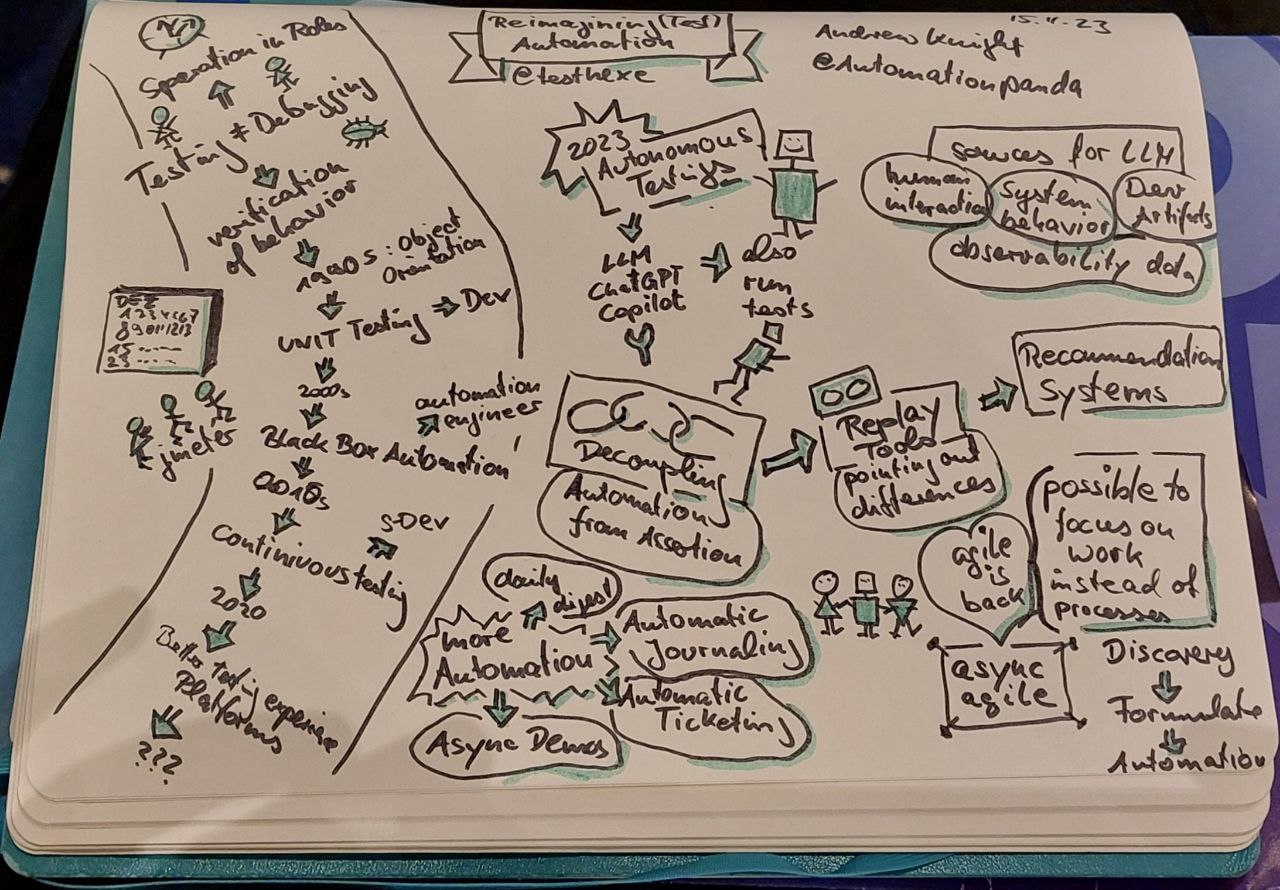 Reimagining (Test)
Automation
@testhexe
15.11.23
Andrew Knight
@Automationpanda
Speration in Roles
Testing ≠ Debugging
verification
of behavior
1990s: Object
Orientation
UNIT Testing
Dev
2000s
automation
engineer
Black Box Automation
DEZ
15
23
jmeter
2010s
s-Dev
Continivous testing
2020
Better testing experience
Platforms
???
2023
Autonomous
Testing
LLM
ChatGPT
Copilot
also
run
tests
Decoupling
Automation
from Assertion
Replay
Tools
pointing out
differences
Recommendation
Systems
sources for LLM
human
interaction
System
behavior
Dev
Artifacts
observability data
daily
digest
more
Automation
Automatic
Journaling
Automatic
Ticketing
Async Demos
agile
is
back
async
agile
possible to
focus on
work
instead of
processes
Discovery
Formulate
Automation